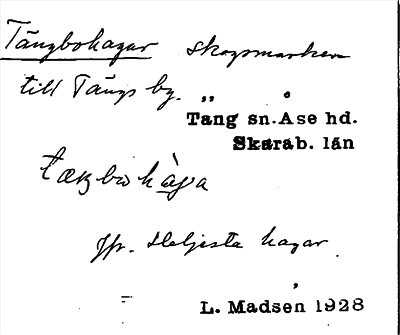 Tängbohagar skogsmarken
till Tängs by.
Tang sn. Ase hd.
Skarab. län
tæŋbohàga
Jfr. Heljesta hagar
L. Madsen 1928